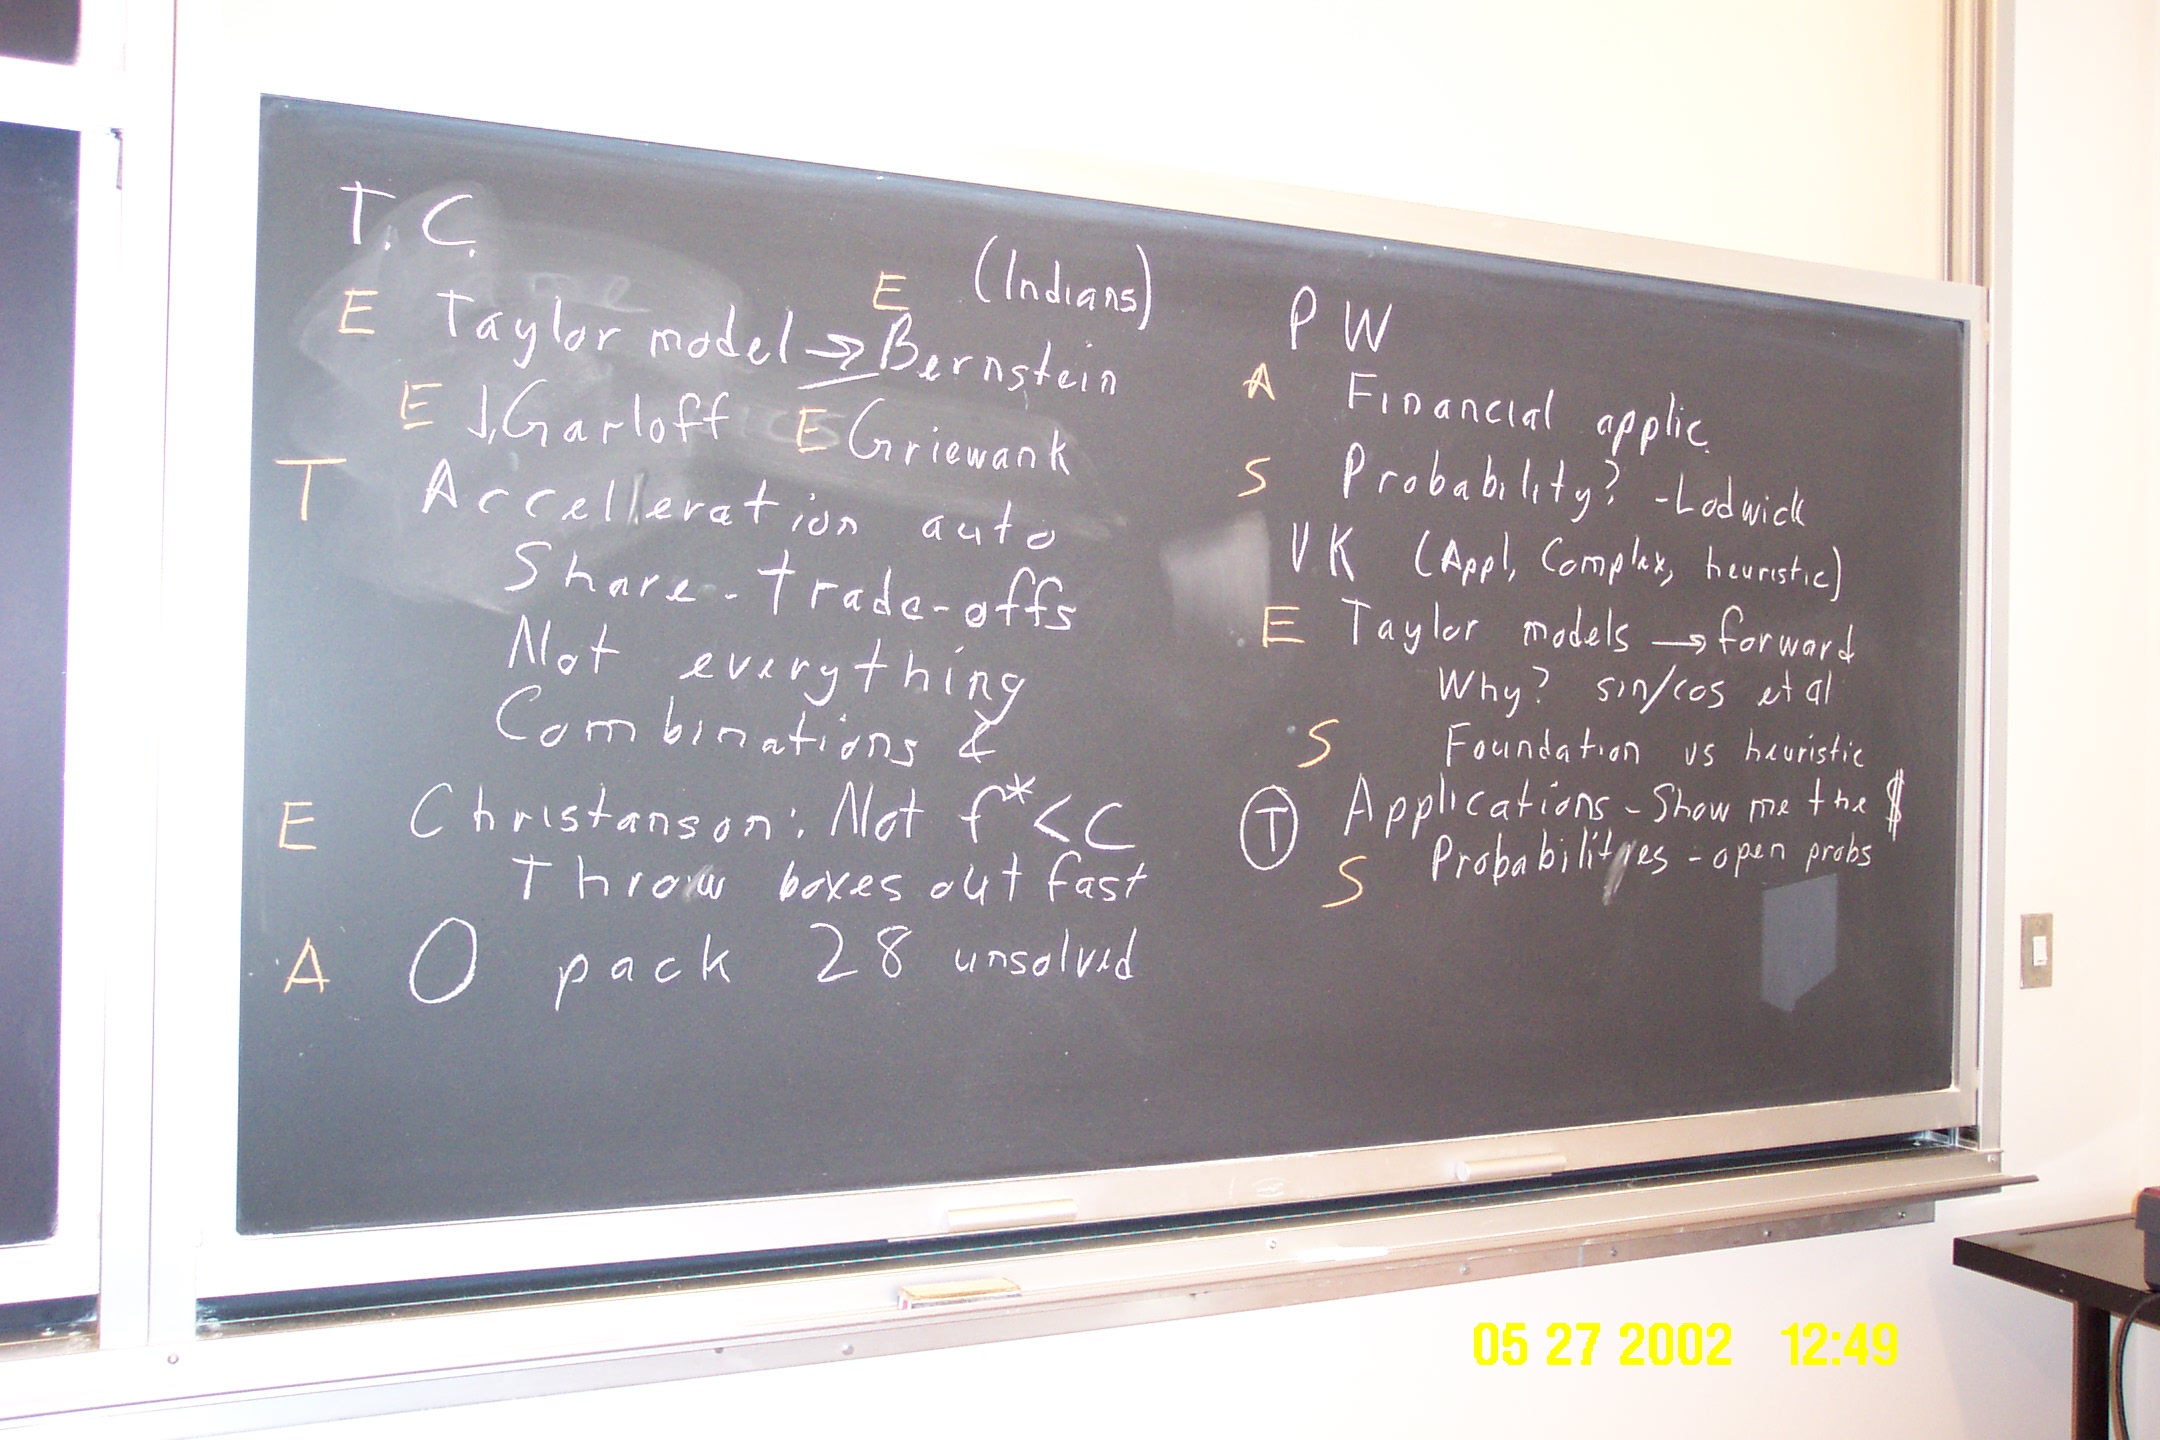 T. C.
(Indians)
E Taylor model → E Bernstein
E J. Garloff E Griewank
T Accelleration auto
Share - trade-offs
Not everything
Combinations &
E Christanson: Not f* < C
Throw boxes out fast
A O pack 28 unsolved
P W
A Financial applic.
S Probability? - Lodwick
VK (Appl, Complex, heuristic)
E Taylor models → forward
Why? sin/cos et al
S Foundation vs heuristic
T Applications - Show me the $
S Probabilities - open probs
05 27 2002 12:49